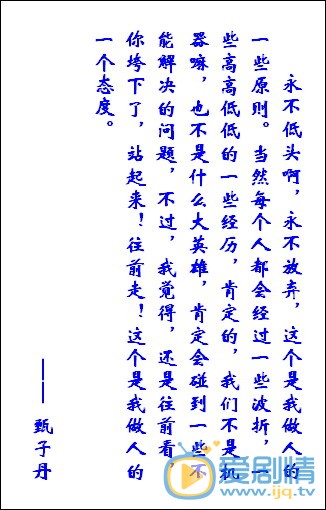 永不低头啊，永不放弃，这个是我做人的
一些原则。当然每个人都会经过一些波折，一
些高高低低的一些经历，肯定的，我们不是机
器嘛，也不是什么大英雄，肯定会碰到一些不
能解决的问题，不过，我觉得，还是往前看，
你垮下了，站起来！往前走！这个是我做人的
一个态度。
——甄子丹
爱剧情
www.ijq.tv